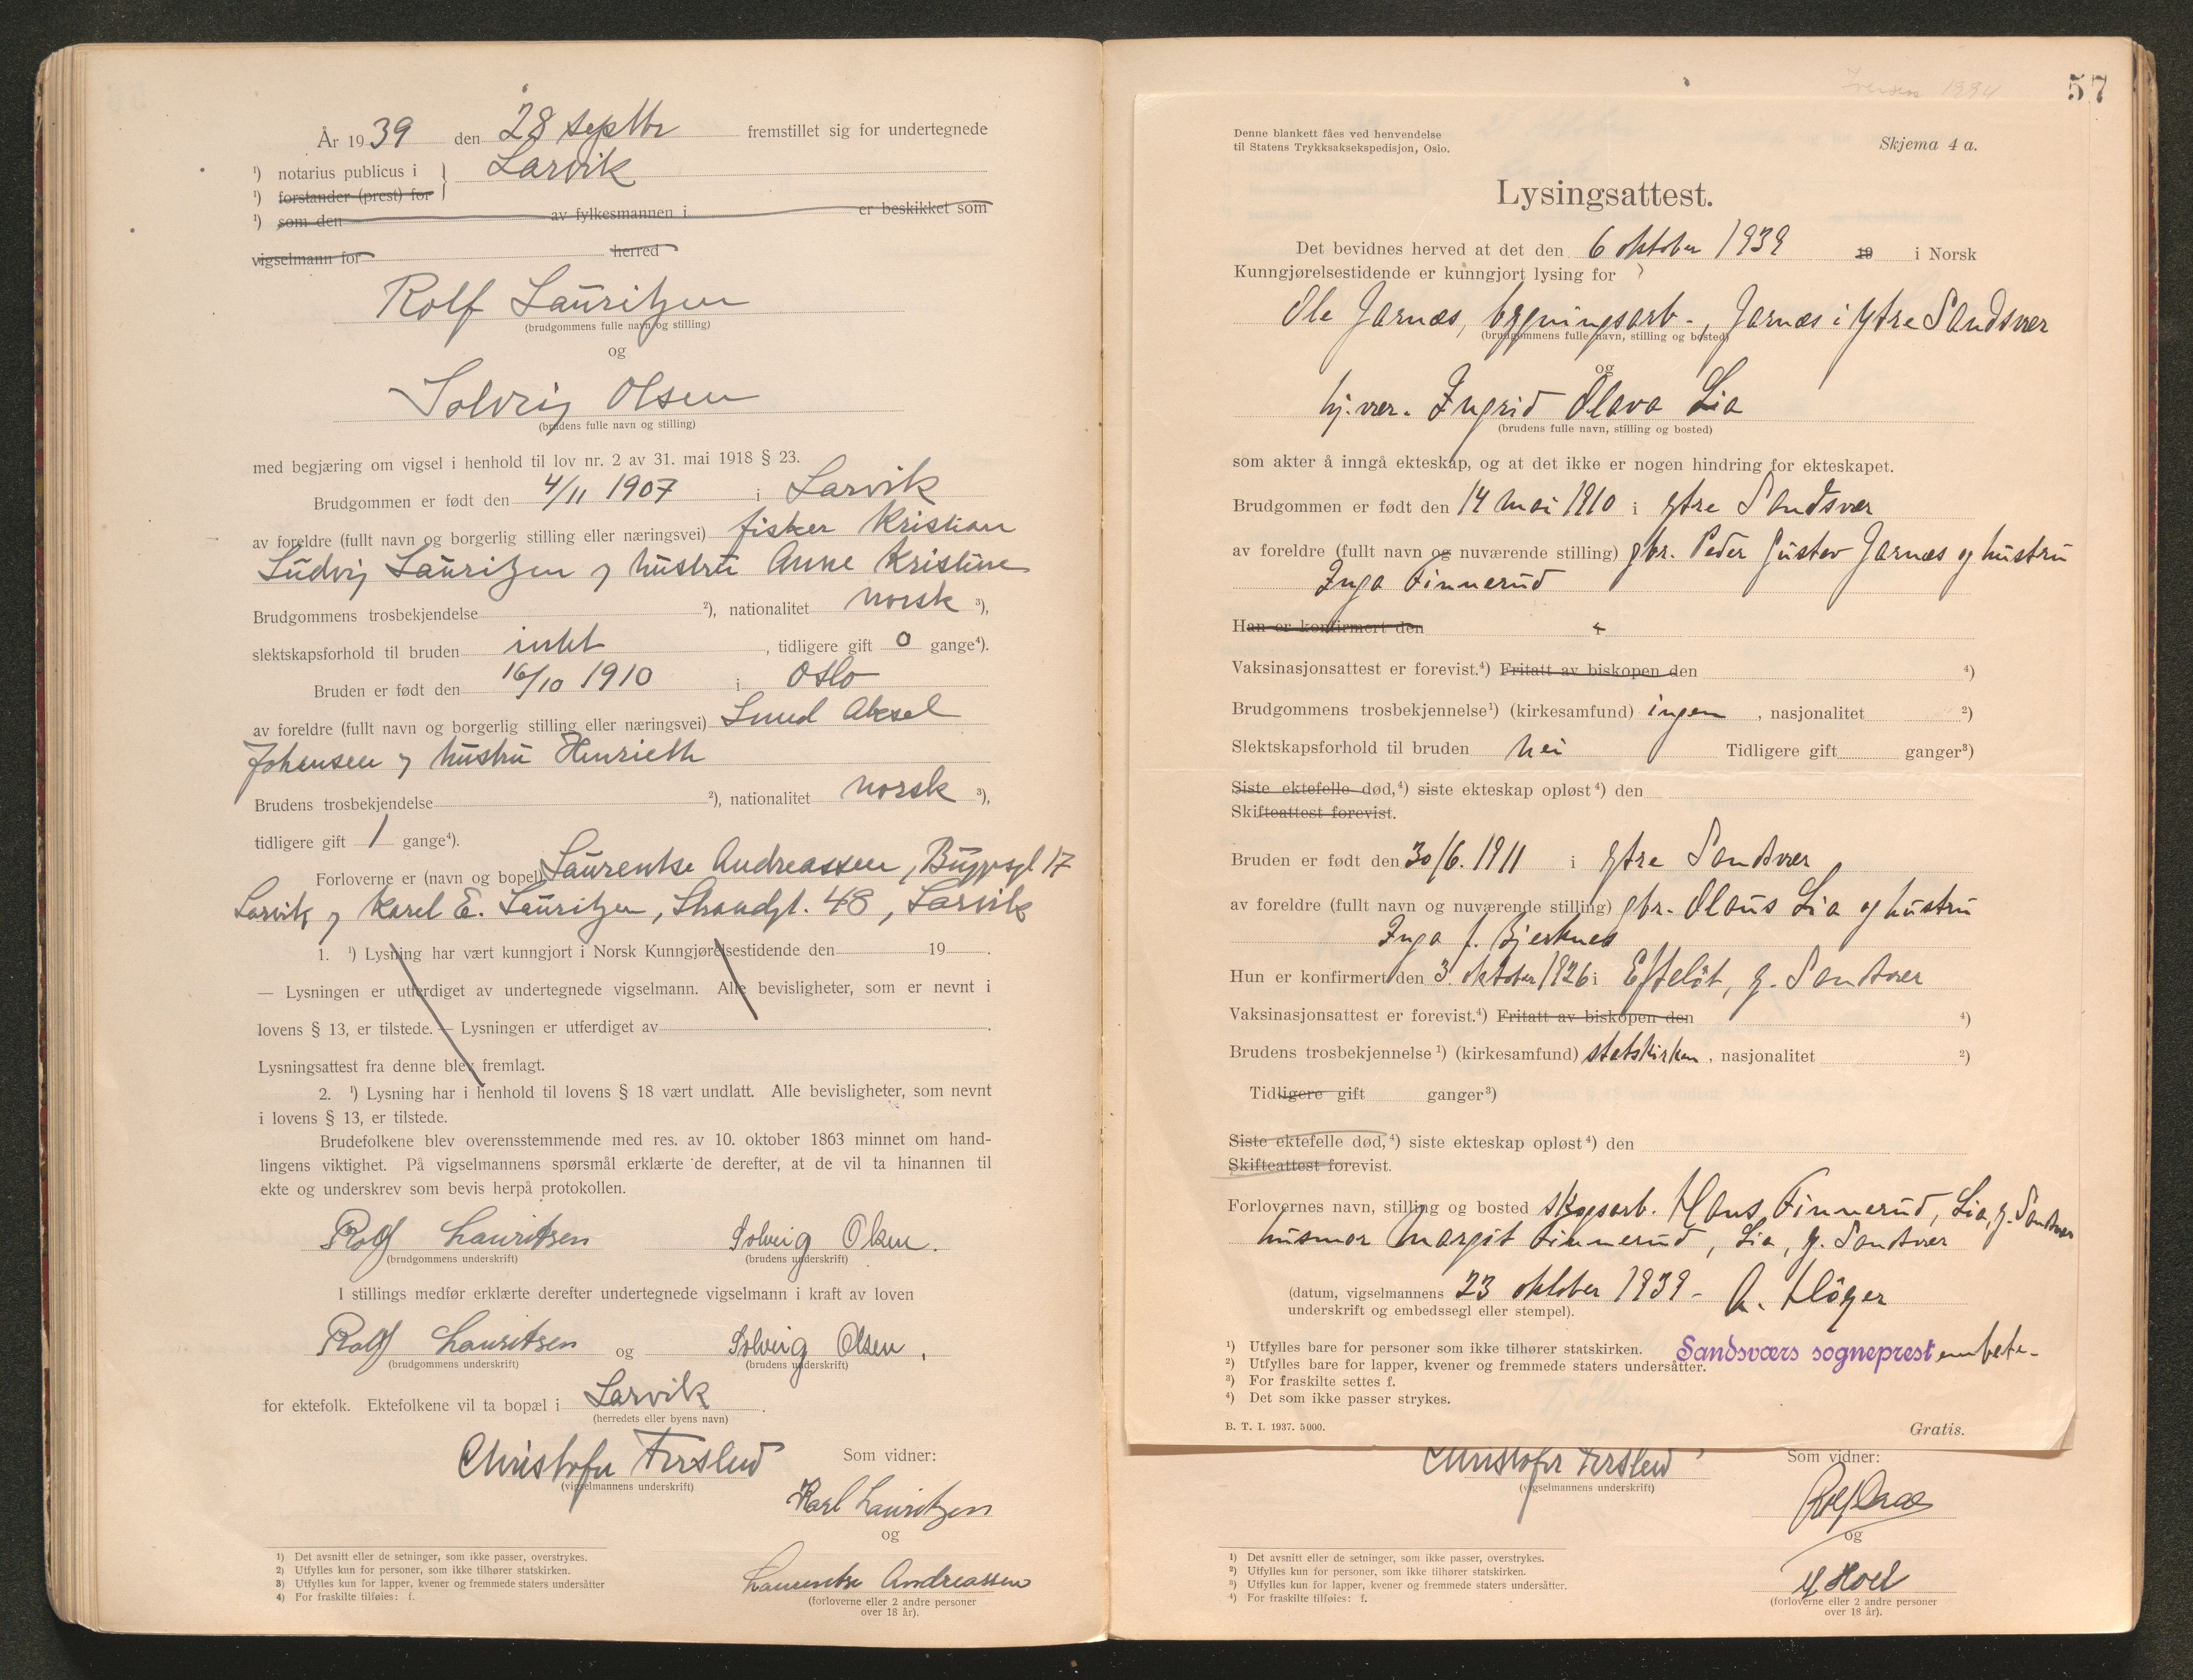 År 1939 den 28 septbr fremstillet sig for undertegnede
¹) notarius publicus i } Larvik
¹) forstander (prest) for
¹) som den av fylkesmannen i er beskikket som
vigselmann for herred
Rolf Lauritzen
(brudgommens fulle navn og stilling)
og
Solveig Olsen
(brudens fulle navn og stilling)
med begjæring om vigsel i henhold til lov nr. 2 av 31. mai 1918 § 23.
Brudgommen er født den 4/11 1907 i Larvik
av foreldre (fullt navn og borgerlig stilling eller næringsvei) fisker Kristian
Ludvig Lauritzen og hustru Anne Kristine
Brudgommens trosbekjendelse ²), nationalitet norsk ³),
slektskapsforhold til bruden intet , tidligere gift 0 gange⁴).
Bruden er født den 16/10 1910 i Oslo
av foreldre (fullt navn og borgerlig stilling eller næringsvei) Smed Aksel
Johansen og hustru Henriette
Brudens trosbekjendelse ²), nationalitet norsk ³),
tidligere gift 1 gange⁴).
Forloverne er (navn og bopel) Laurentse Andreassen, Buggesgt 17
Larvik og Karel E. Lauritzen, Strandgt. 48, Larvik
1. ¹) Lysning har vært kunngjort i Norsk Kunngjørelsestidende den 19 .
— Lysningen er utferdiget av undertegnede vigselmann. Alle bevisligheter, som er nevnt i
lovens § 13, er tilstede. — Lysningen er utferdiget av .
Lysningsattest fra denne blev fremlagt.
2. ¹) Lysning har i henhold til lovens § 18 vært undlatt. Alle bevisligheter, som nevnt
i lovens § 13, er tilstede.
Brudefolkene blev overensstemmende med res. av 10. oktober 1863 minnet om hand-
lingens viktighet. På vigselmannens spørsmål erklærte de derefter, at de vil ta hinannen til
ekte og underskrev som bevis herpå protokollen.
Rolf Lauritsen Solveig Olsen.
(brudgommens underskrift) (brudens underskrift)
I stillings medfør erklærte derefter undertegnede vigselmann i kraft av loven
Rolf Lauritsen og Solveig Olsen,
(brudgommens underskrift) (brudens underskrift)
for ektefolk. Ektefolkene vil ta bopæl i Larvik .
(herredets eller byens navn)
Christofer Fersleo Som vidner:
(vigselmannens underskrift)
Karl Lauritzen
og
Laurentse Andreassen
(forloverne eller 2 andre personer
over 18 år).
1) Det avsnitt eller de setninger, som ikke passer, overstrykes.
2) Utfylles kun for personer, som ikke tilhører statskirken.
3) Utfylles kun for lapper, kvener og fremmede staters undersåtter
4) For fraskilte tilføies: f.
Iversen 1994
57
Denne blankett fåes ved henvendelse
til Statens Trykksaksekspedisjon, Oslo.
Skjema 4 a.
Lysingsattest.
Det bevidnes herved at det den 6 oktober 1939 19 i Norsk
Kunngjørelsestidende er kunngjort lysing for
Ole Jarnæs, bygningsarb., Jarnæs i Ytre Sandsvær
(brudgommens fulle navn, stilling og bosted)
og
hj.vær. Ingrid Olava Lia
(brudens fulle navn, stilling og bosted)
som akter å inngå ekteskap, og at det ikke er nogen hindring for ekteskapet.
Brudgommen er født den 14 mai 1910 i Ytre Sandsvær
av foreldre (fullt navn og nuværende stilling) gbr. Peder Gustav Jarnæs og hustru
Inga Finnerud
Han er konfirmert den
Vaksinasjonsattest er forevist.⁴) Fritatt av biskopen den ⁴)
Brudgommens trosbekjennelse¹) (kirkesamfund) ingen , nasjonalitet ²)
Slektskapsforhold til bruden nei Tidligere gift ganger³)
Siste ektefelle død,⁴) siste ekteskap opløst⁴) den
Skifteattest forevist.
Bruden er født den 30/6. 1911 i Ytre Sandsvær
av foreldre (fullt navn og nuværende stilling) gbr. Olaus Lia og hustru
Inga f. Bjerknes
Hun er konfirmert den 3. oktober 1926 i Efteløt, Y. Sandsvær
Vaksinasjonsattest er forevist.⁴) Fritatt av biskopen den ⁴)
Brudens trosbekjennelse¹) (kirkesamfund) statskirken , nasjonalitet ²)
Tidligere gift ganger³)
Siste ektefelle død,⁴) siste ekteskap opløst⁴) den
Skifteattest forevist.
Forlovernes navn, stilling og bosted skogsarb. Hans Finnerud, Lia, Y. Sandsvær
husmor Margit Finnerud, Lia, Y. Sandsvær
(datum, vigselmannens 23 oktober 1939 - A. Fløger
underskrift og embedssegl eller stempel).
¹) Utfylles bare for personer som ikke tilhører statskirken.
Sandsværs sogneprestembete-
²) Utfylles bare for lapper, kvener og fremmede staters undersåtter.
³) For fraskilte settes f.
⁴) Det som ikke passer strykes.
B. T. I. 1937. 5000.
Gratis.
Christofer Fersleo Som vidner:
(vigselmannens underskrift)
og
Hoel
(forloverne eller 2 andre personer
over 18 år).
1) Det avsnitt eller de setninger, som ikke passer, overstrykes.
²) Utfylles kun for personer, som ikke tilhører statskirken.
³) Utfylles kun for lapper, kvener og fremmede staters undersåtter.
⁴) For fraskilte tilføies: f.